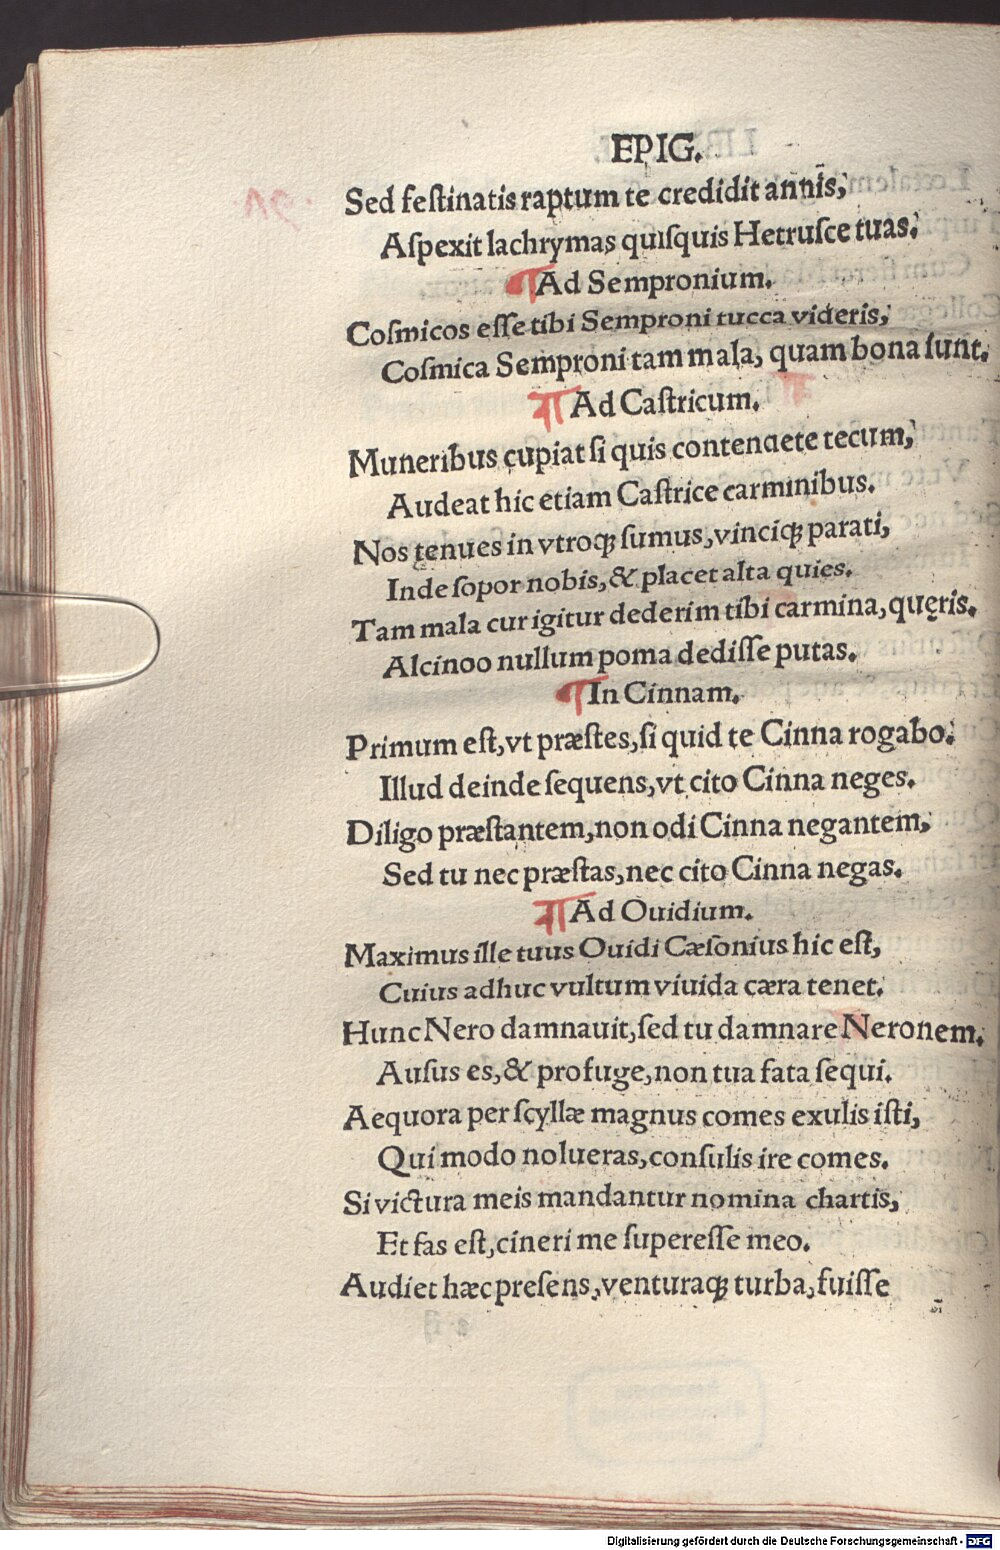 EPIG.
Sed feſtinatis raptum te credidit annis,
Aſpexit lachrymas quiſquis Hetruſce tuas.
¶Ad Sempronium.
Coſmicos eſſe tibi Semproni tucca videris,
Coſmica Semproni tam mala, quam bona ſunt.
¶Ad Caſtricum.
Muneribus cupiat ſi quis contendete tecum,
Audeat hic etiam Caſtrice carminibus.
Nos tenues in vtroqꝫ ſumus, vinciqꝫ parati,
Inde ſopor nobis, & placet alta quies.
Tam mala cur igitur dederim tibi carmina, quęris.
Alcinoo nullum poma dediſſe putas.
¶In Cinnam.
Primum eſt, vt præſtes, ſi quid te Cinna rogabo:
Illud deinde ſequens, vt cito Cinna neges.
Diligo præſtantem, non odi Cinna negantem,
Sed tu nec præſtas, nec cito Cinna negas.
¶Ad Ouidium.
Maximus ille tuus Ouidi Cæſonius hic eſt,
Cuius adhuc vultum viuida cæra tenet.
Hunc Nero damnauit, ſed tu damnare Neronem.
Auſus es, & profuge, non tua fata ſequi.
Aequora per ſcyllæ magnus comes exulis iſti,
Qui modo nolueras, conſulis ire comes.
Si victura meis mandantur nomina chartis,
Et fas eſt, cineri me ſupereſſe meo.
Audiet hæc preſens, venturaqꝫ turba, fuiſſe
Digitalisierung gefördert durch die Deutsche Forschungsgemeinschaft - DFG